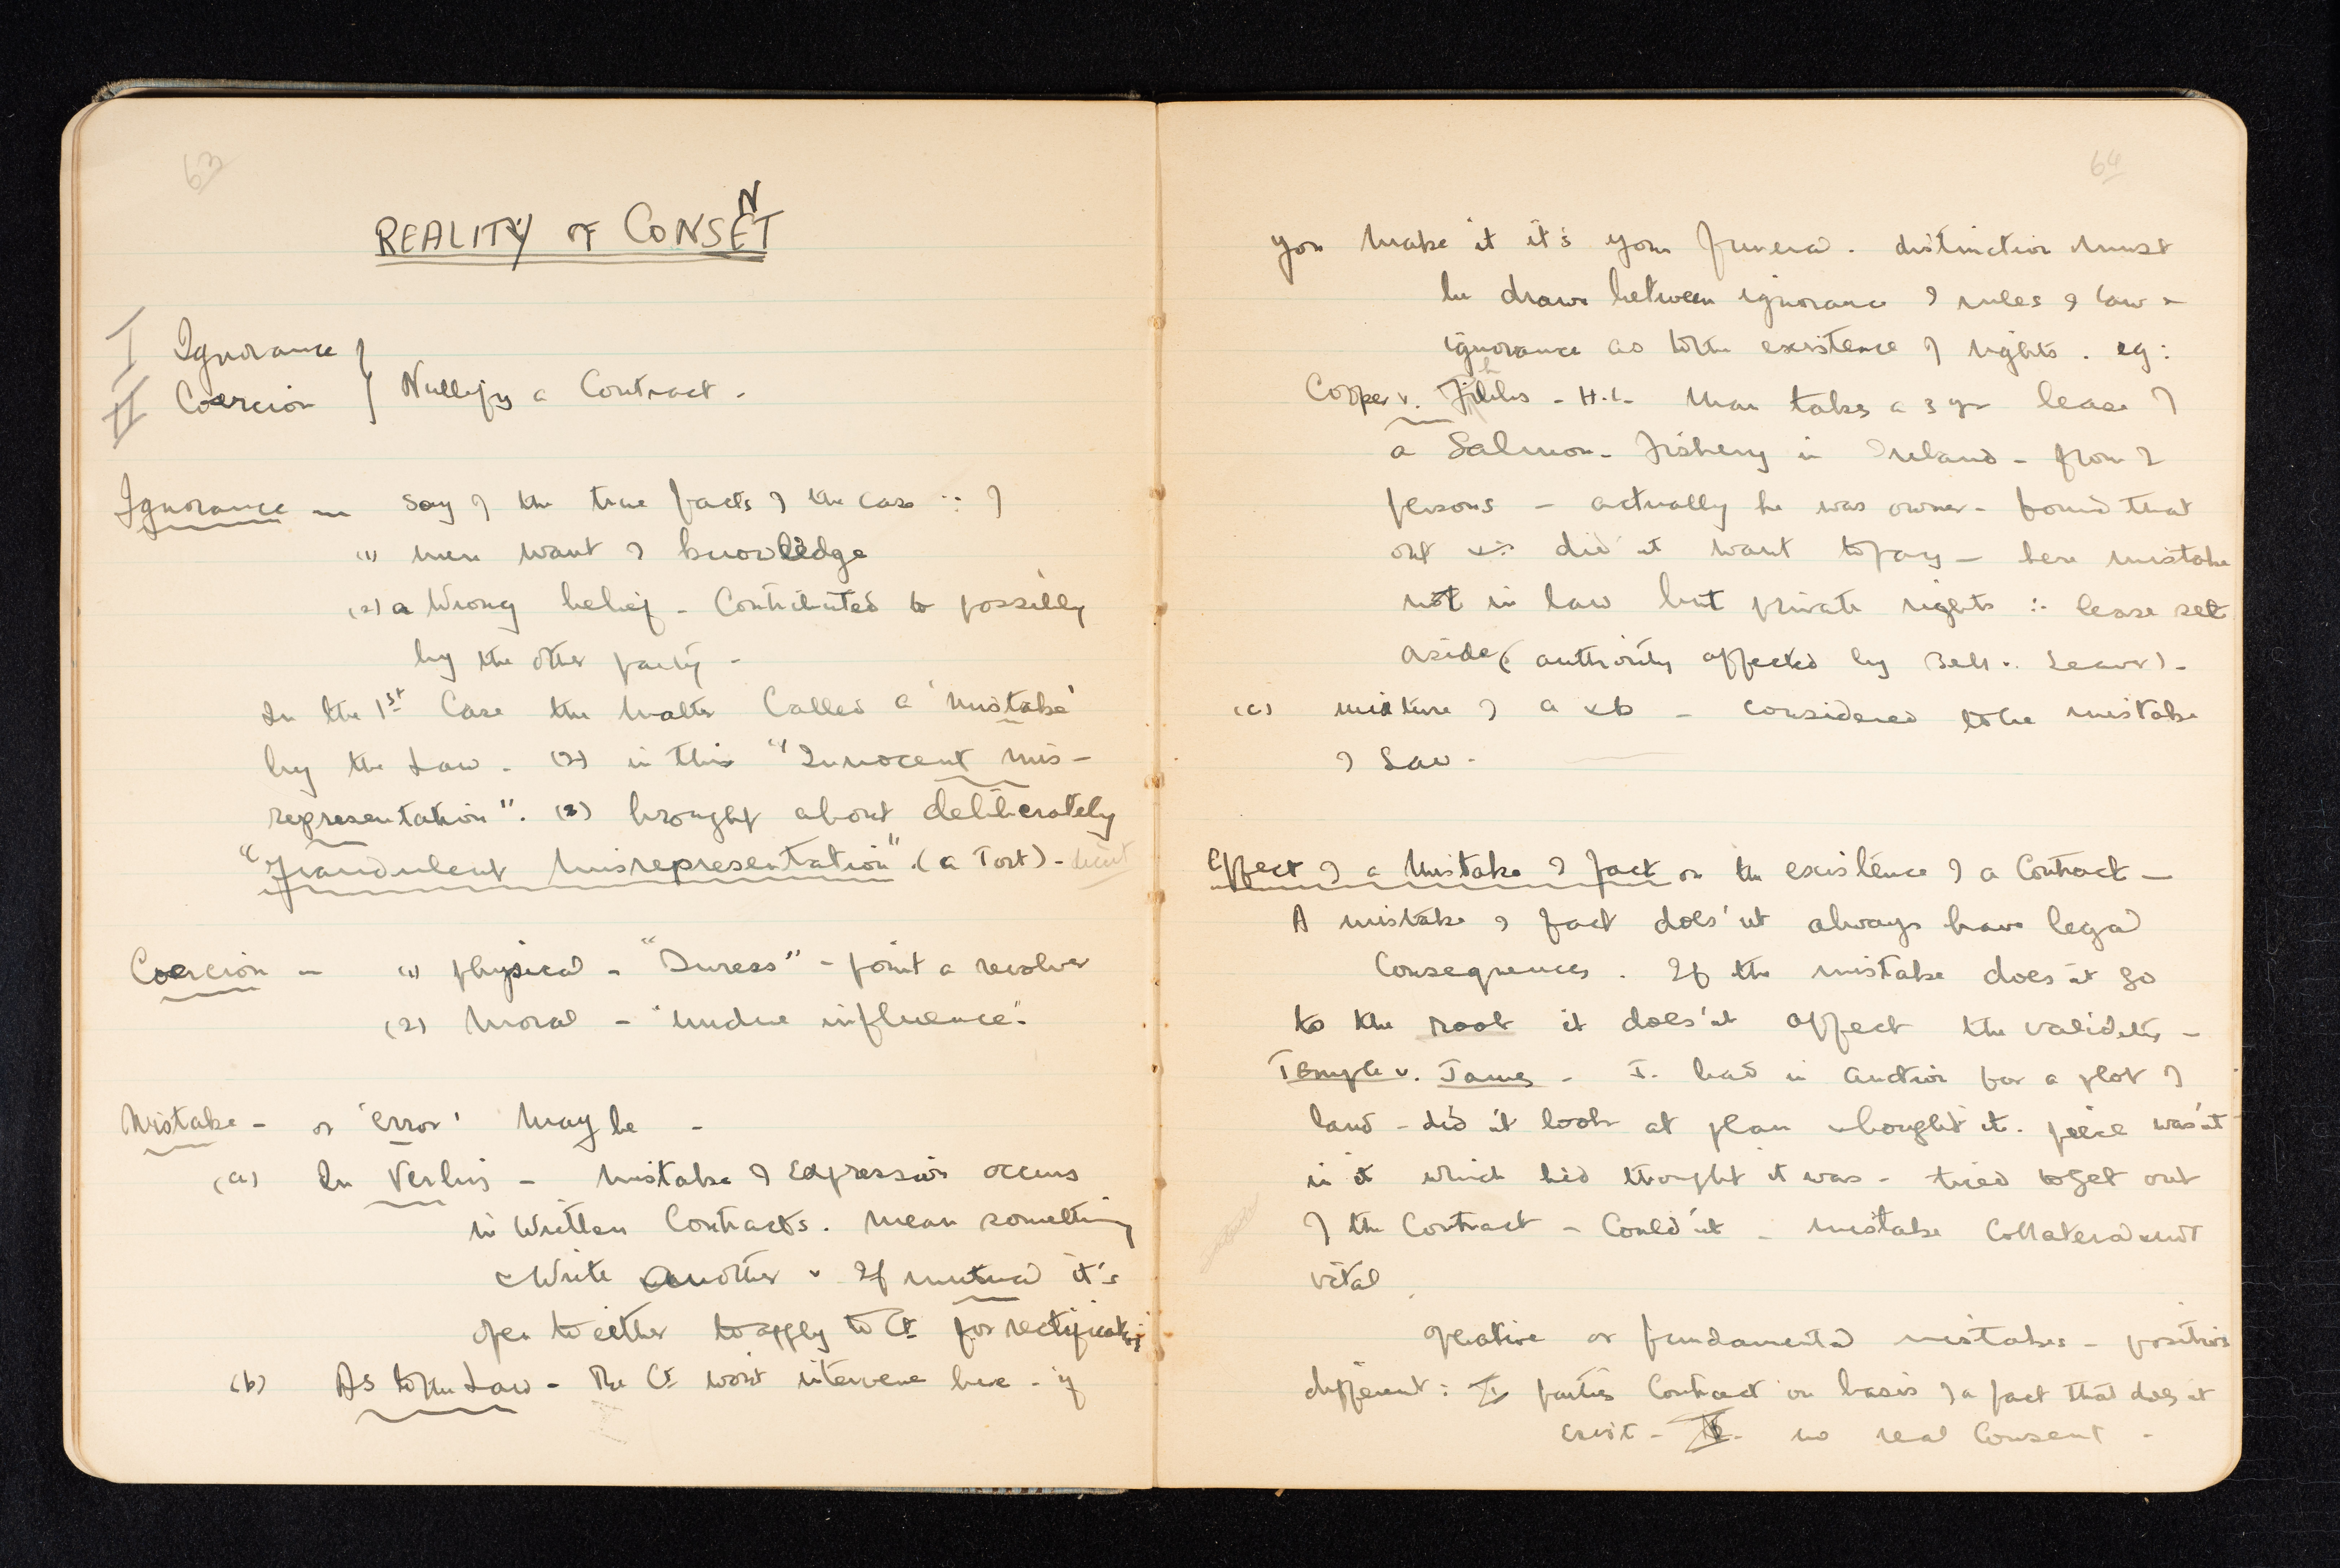 63
REALITY OF CONSENT
I Ignorance
II Coercion } Nullify a Contract -
Ignorance - say of the true facts of the case ∵ of
(1) mere want of knowledge
(2) a wrong belief - Contributed to possibly
by the other party -
In the 1st Case the matter Called a 'mistake'
by the Law - (2) in this "Innocent mis-
representation". (2) brought about deliberately
"fraudulent misrepresentation". (a Tort) - deceit
Coercion - (1) physical - "Duress" - point a revolver
(2) Moral - "undue influence".
Mistake - or 'error' may be -
(a) In Verbis - mistake of Expression occurs
in written Contracts. mean something
& write another - If mutual it's
open to either to apply to Ct for rectification
(b) As to the Law - The Ct won't intervene here - if
64
you make it it's your funeral - distinction must
be drawn between ignorance of rules of law &
ignorance as to the existence of rights. eg:
Cooper v. Phibbs - H.L. man takes a 3 yr lease of
a Salmon-Fishery in Ireland - from 2
persons - actually he was owner - found that
out & ∴ did'nt want to pay - here mistake
not in law but private rights ∴ lease set
aside (authority affected by Bell v. Lever) -
(c) mixture of a & b - considered to be mistake
of Law -
Effect of a Mistake of fact on the existence of a Contract -
A mistake of fact does'nt always have legal
Consequences. If the mistake does'nt go
to the root it does'nt affect the validity -
Temple v. James - T. had in auction for a plot of
land - did'nt look at plan & bought it. piece was'nt
in it which he'd thought it was - tried to get out
of the Contract - Could'nt - mistake Collateral & not
vital
operative or fundamental mistakes - position
different: If parties Contract on basis of a fact that does'nt
exist - no real Consent -